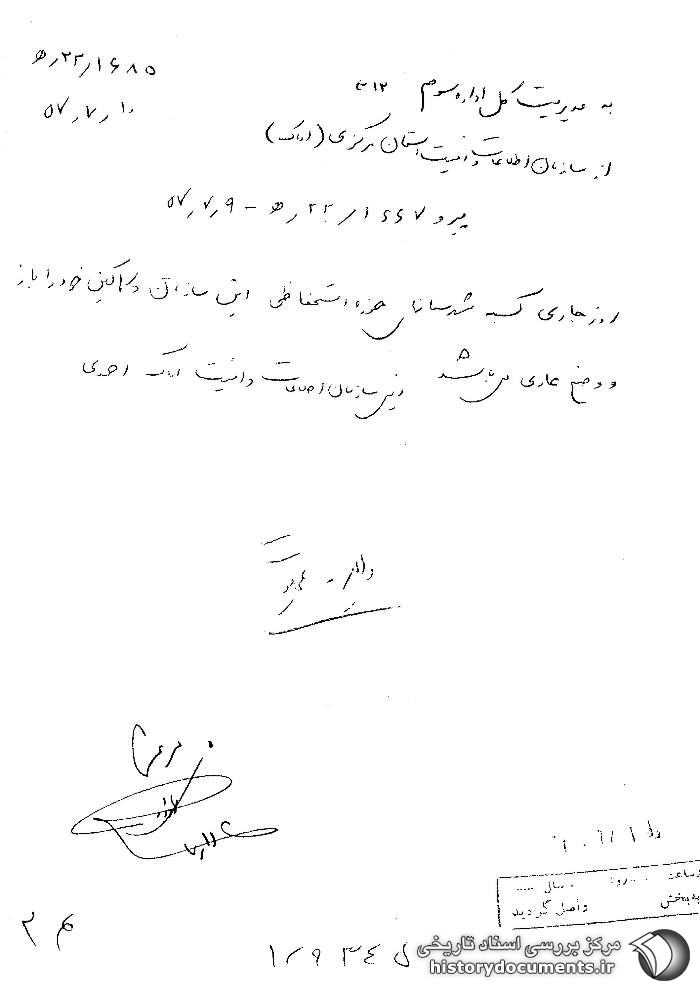 ۲۲/۱۶۸۵ ر ھ
به مدیریت کل اداره سوم ۳۱۲
۵۷٫۷٫۱۰
از سازمان اطلاعات و امنیت استان مرکزی (اراک)
پیرو ۲۲/۱۶۶۷ ر ھ - ۵۷٫۷٫۹
روز جاری کسبه شهرستانهای حوزه استحفاظی این سازمان دکاکین خود را باز
و وضع عادی می باشد رئیس سازمان اطلاعات و امنیت اراک احدی
ساعت روز سال
به بخش واصل گردید
۲ م
۱/۹۳۴ ل
مرکز بررسی اسناد تاریخی
historydocuments.ir